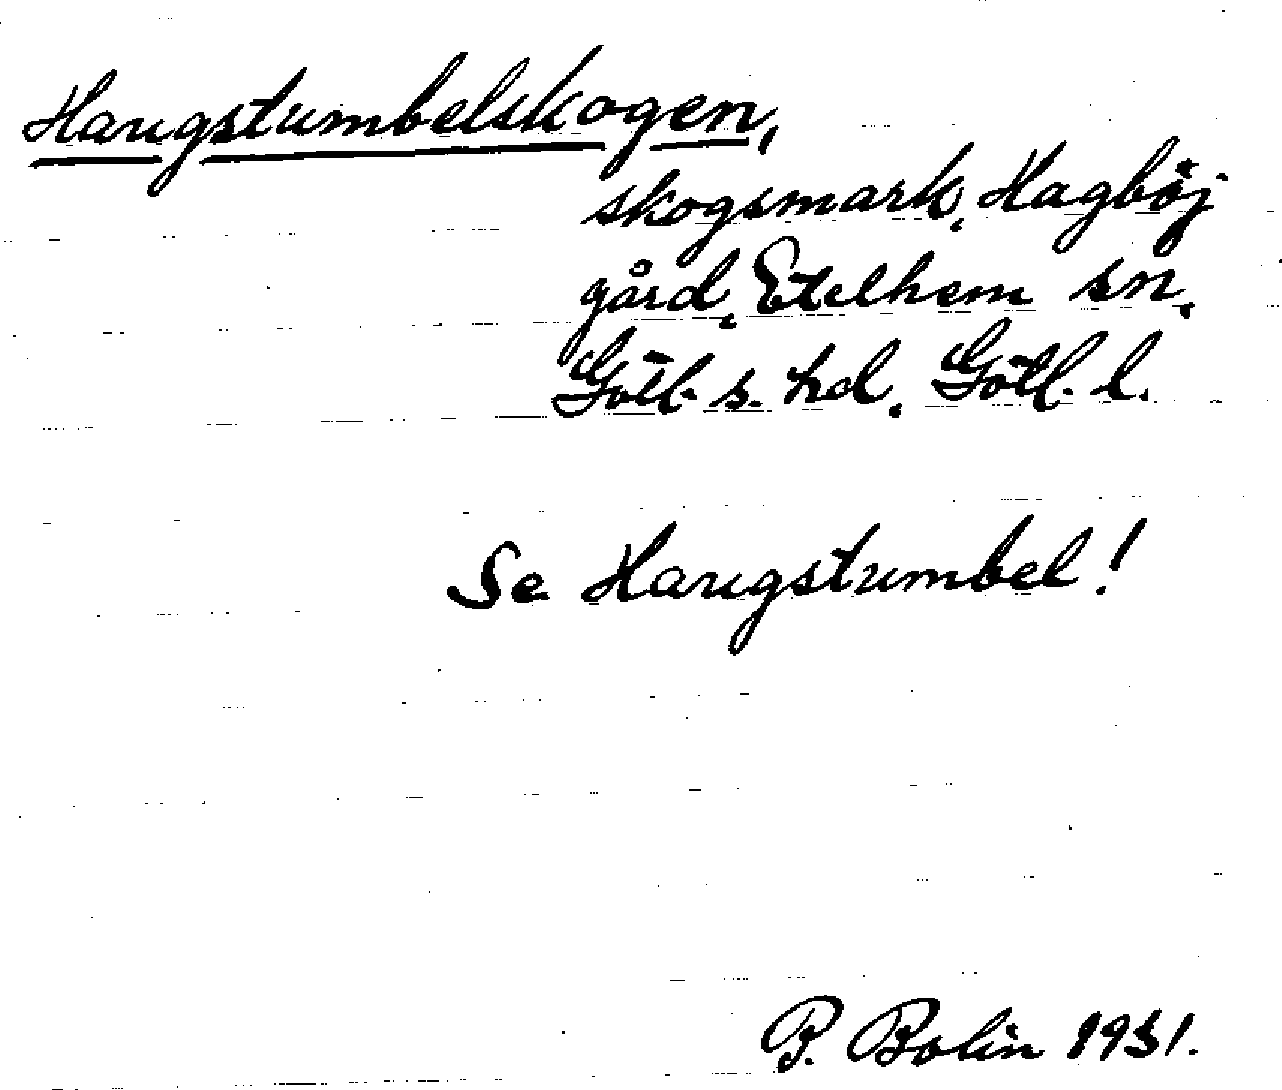 Haugstumbelskogen,
skogsmark, Hagböj
gård, Etelhem sn,
Götl. s. hd, Götl. l.
Se Haugstumbel!
P. Bolin 1931.